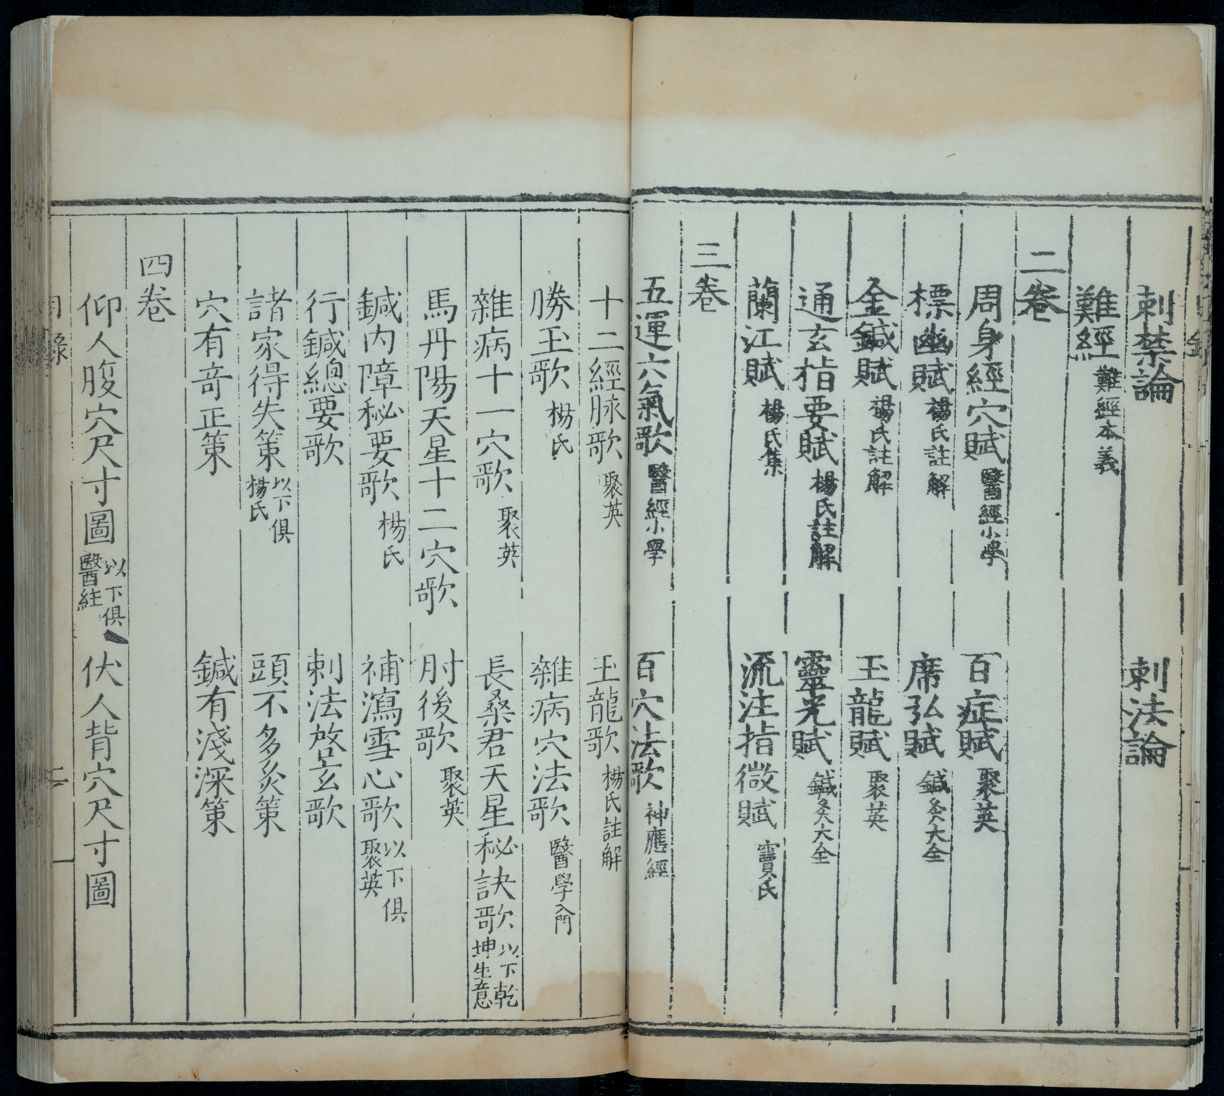 刺禁論　刺法論
難經 難經本義
二卷
周身經穴賦 醫經小學　百症賦 聚英
標幽賦 楊氏註解　席弘賦 鍼灸大全
金鍼賦 楊氏註解　玉龍賦 聚英
通玄指要賦 楊氏註解　靈光賦 鍼灸大全
蘭江賦 楊氏集　流注指微賦 竇氏
三卷
五運六氣歌 醫經小學　百穴法歌 神應經
十二經脉歌 聚英　玉龍歌 楊氏註解
勝玉歌 楊氏　雜病穴法歌 醫學入門
雜病十一穴歌 聚英　長桑君天星秘訣歌 以下乾坤生意
馬丹陽天星十二穴歌　肘後歌 聚英
鍼內障秘要歌 楊氏　補瀉雪心歌 以下俱聚英
行鍼總要歌　刺法啓玄歌
諸家得失策 以下俱楊氏　頭不多灸策
穴有竒正策　鍼有淺深策
四卷
仰人腹穴尺寸圖 以下俱醫統　伏人背穴尺寸圖
目錄　二